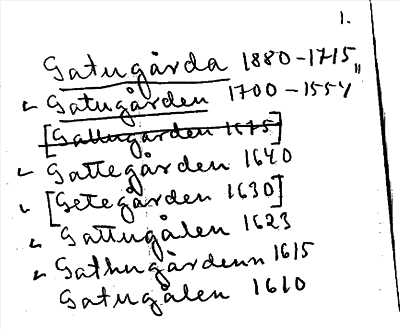 1.
Gatugårda 1880-1715"
Gatugården 1700-1554
[Gallugården 1675]
Gattegården 1640
[Getegården 1630]
Gattugålen 1623
Gathugårdenn 1615
Gatugålen 1610